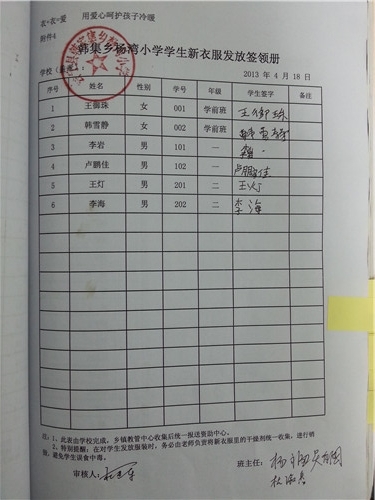 衣+衣=爱 用爱心呵护孩子冷暖
附件4
韩集乡杨湾小学学生新衣服发放签领册
学校（盖章）： 2013 年 4 月 18 日
序号 姓名 性别 学号 年级 学生签字 备注
1 王御珠 女 001 学前班 王御珠
2 韩雪静 女 002 学前班 韩雪静
3 李岩 男 101 一
4 卢鹏佳 男 102 一 卢鹏佳
5 王灯 男 201 二 王灯
6 李海 男 202 二 李海
注：1、此表由学校完成，乡镇教管中心收集后统一报送资助中心。
2、特别提醒：在对学生发放服装时，务必由老师负责将新衣服里的干燥剂统一收集，进行销
毁，避免学生误食中毒。
审核人： 班主任：